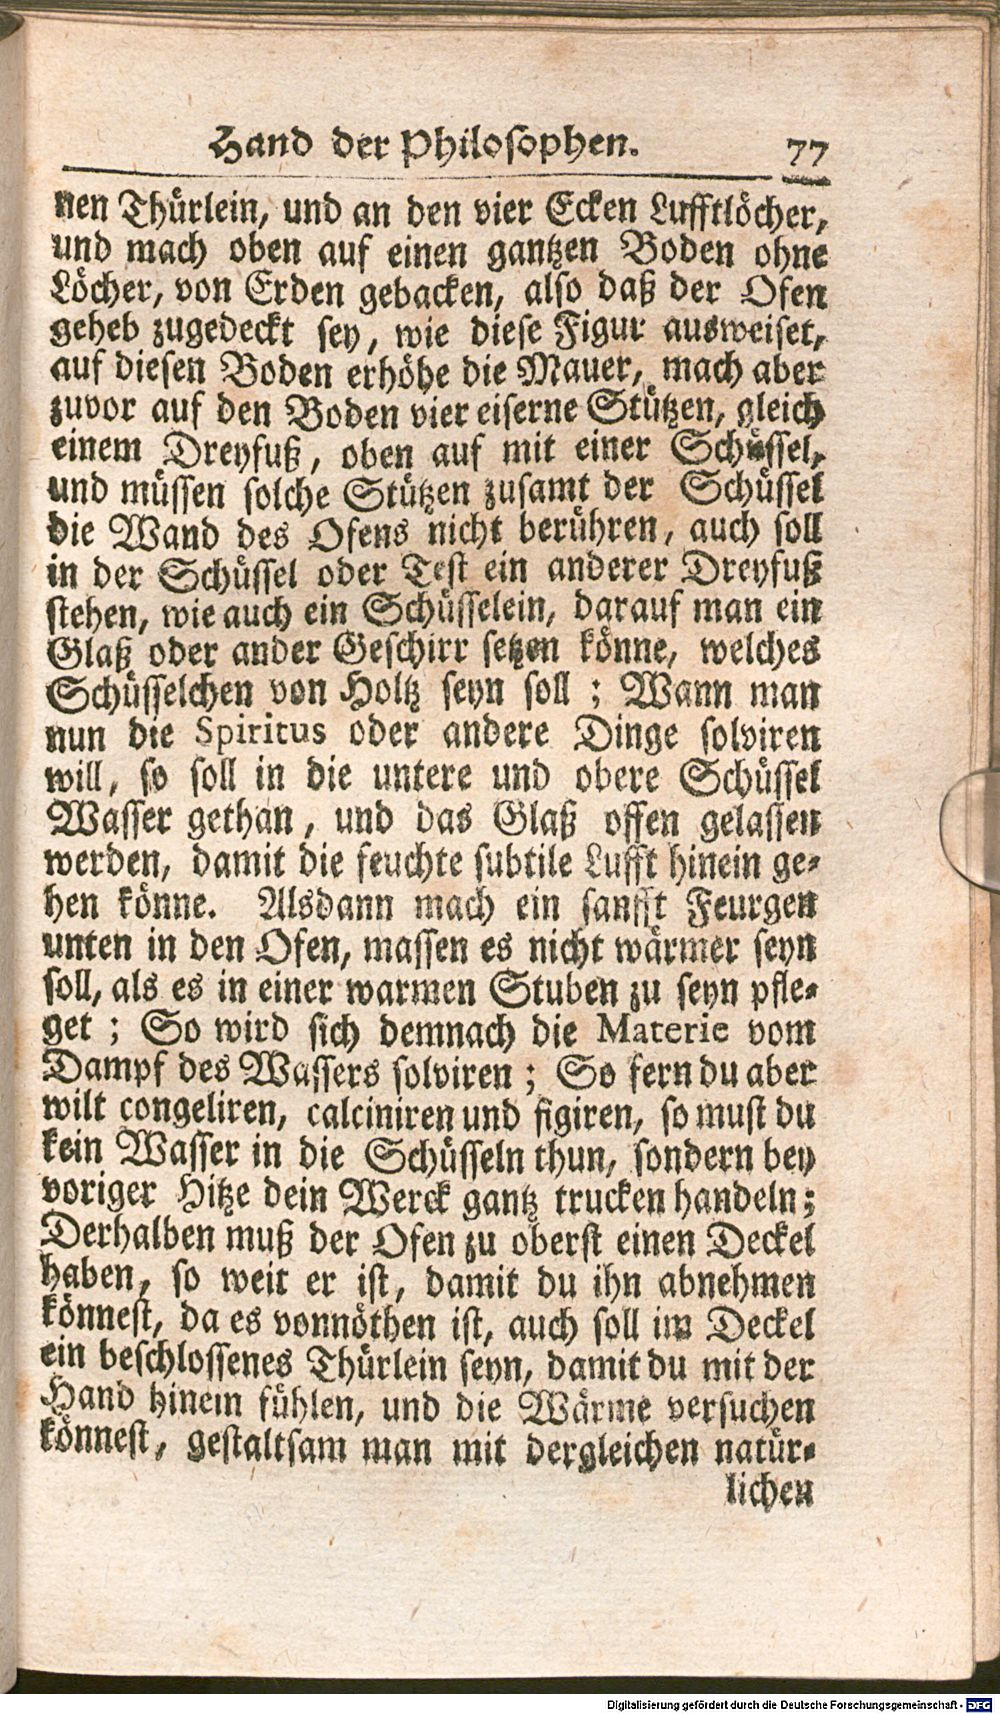 Hand der Philosophen. 77
nen Thürlein, und an den vier Ecken Lufftlöcher,
und mach oben auf einen gantzen Boden ohne
Löcher, von Erden gebacken, also daß der Ofen
geheb zugedeckt sey, wie diese Figur ausweiset,
auf diesen Boden erhöhe die Mauer, mach aber
zuvor auf den Boden vier eiserne Stützen, gleich
einem Dreyfuß, oben auf mit einer Schüssel,
und müssen solche Stützen zusamt der Schüssel
die Wand des Ofens nicht berühren, auch soll
in der Schüssel oder Test ein anderer Dreyfuß
stehen, wie auch ein Schüsselein, darauf man ein
Glaß oder ander Geschirr setzen könne, welches
Schüsselchen von Holtz seyn soll; Wann man
nun die Spiritus oder andere Dinge solviren
will, so soll in die untere und obere Schüssel
Wasser gethan, und das Glaß offen gelassen
werden, damit die feuchte subtile Lufft hinein ge-
hen könne. Alsdann mach ein sanfft Feurgen
unten in den Ofen, massen es nicht wärmer seyn
soll, als es in einer warmen Stuben zu seyn pfle-
get; So wird sich demnach die Materie vom
Dampf des Wassers solviren; So fern du aber
wilt congeliren, calciniren und figiren, so must du
kein Wasser in die Schüsseln thun, sondern bey
voriger Hitze dein Werck gantz trucken handeln;
Derhalben muß der Ofen zu oberst einen Deckel
haben, so weit er ist, damit du ihn abnehmen
könnest, da es vonnöthen ist, auch soll im Deckel
ein beschlossenes Thürlein seyn, damit du mit der
Hand hinein fühlen, und die Wärme versuchen
könnest, gestaltsam man mit dergleichen natür-
lichen
Digitalisierung gefördert durch die Deutsche Forschungsgemeinschaft - DFG